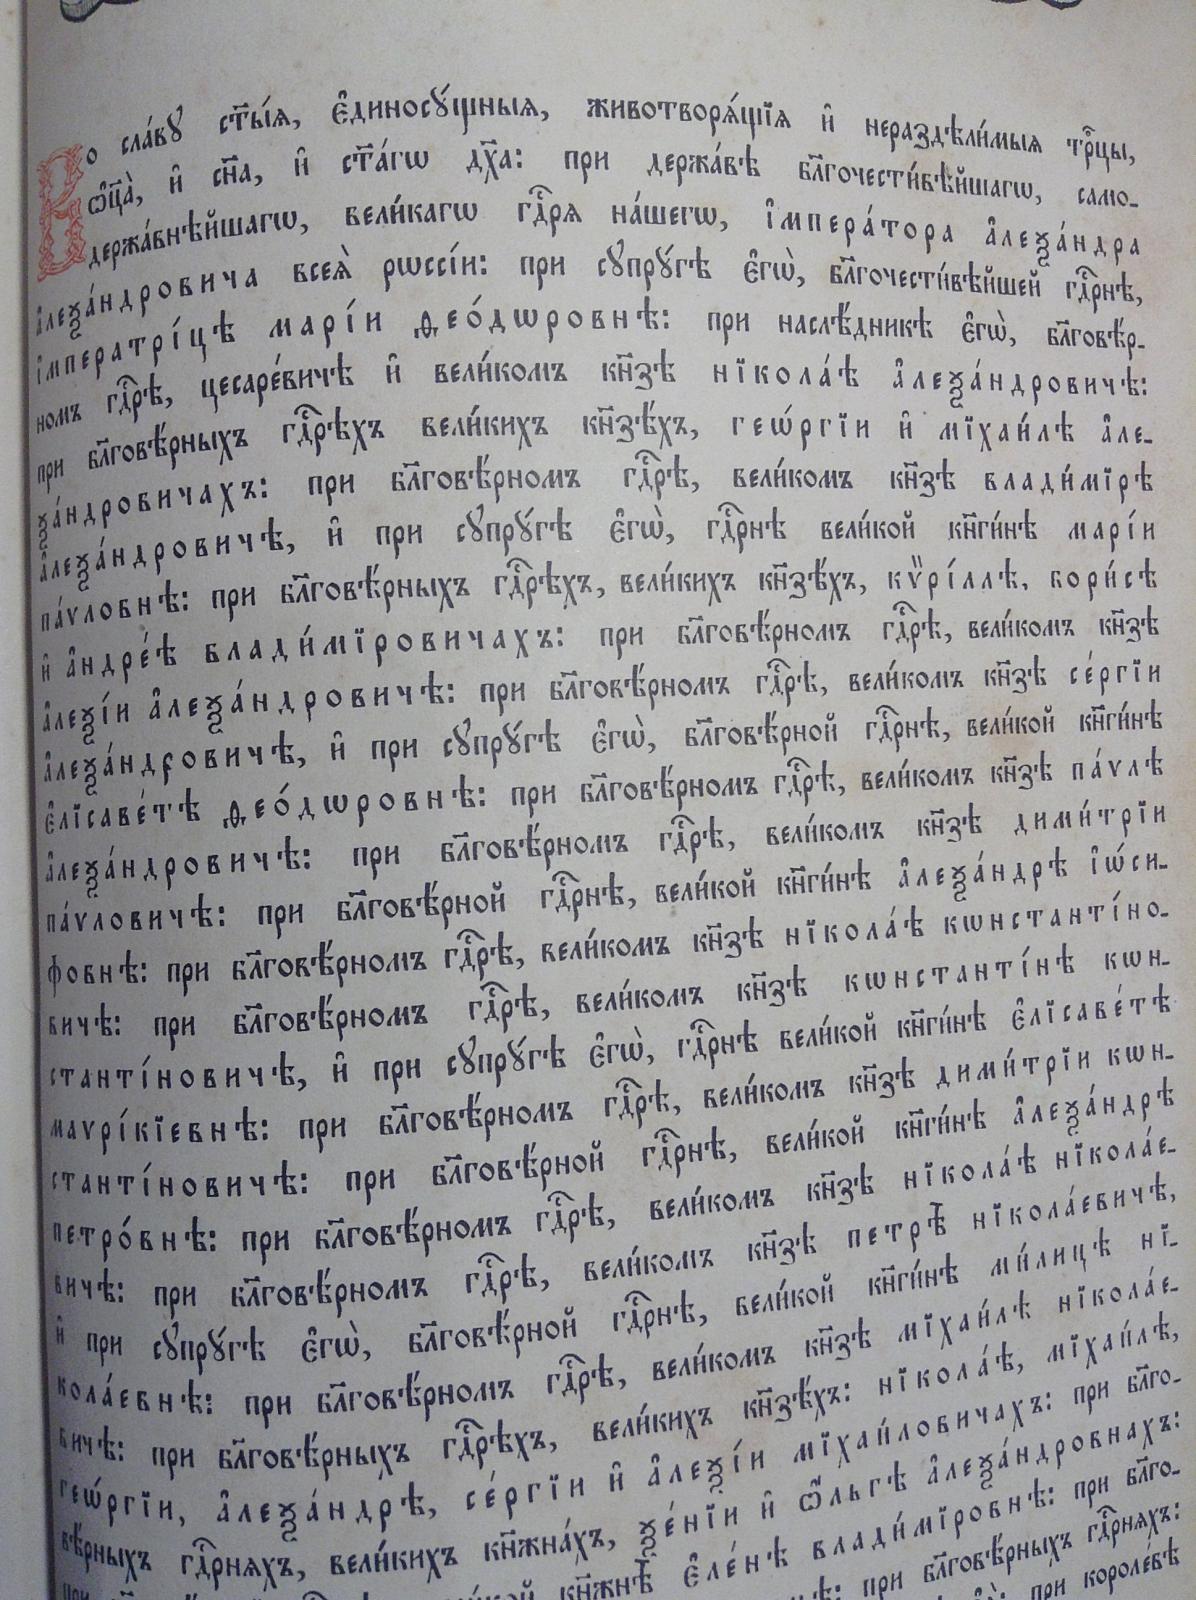 Во сла́вꙋ ст҃ы́ѧ, є҆диносꙋ́щныѧ, животворѧ́щїѧ и҆ нераздѣли́мыѧ трⷪ҇цы,
ѻ҆ц҃а̀, и҆ сн҃а, и҆ ст҃а́гѡ дх҃а: при держа́вѣ бл҃гочести́вѣйшагѡ, само-
держа́внѣйшагѡ, вели́кагѡ гдⷭ҇рѧ на́шегѡ, і҆мпера́тора а҆леѯа́ндра
а҆леѯа́ндровича всеѧ̀ рѡссі́и: при сꙋпрꙋ́гѣ є҆гѡ̀, бл҃гочести́вѣйшей гдⷭ҇рнѣ,
і҆мператрі́цѣ марі́и ѳео́дѡровнѣ: при наслѣ́дникѣ є҆гѡ̀, бл҃говѣ́р-
номъ гдⷭ҇рѣ, цесаре́вичѣ и҆ вели́комъ кн҃зѣ нїкола́ѣ а҆леѯа́ндровичѣ:
при бл҃говѣ́рныхъ гдⷭ҇рѣхъ вели́кихъ кн҃зѣ́хъ, геѡ́ргїи и҆ мїхаи́лѣ а҆ле-
ѯа́ндровичахъ: при бл҃говѣ́рномъ гдⷭ҇рѣ, вели́комъ кн҃зѣ влади́мїрѣ
а҆леѯа́ндровичѣ, и҆ при сꙋпрꙋ́гѣ є҆гѡ̀, гдⷭ҇рнѣ вели́кой кн҃ги́нѣ марі́и
па́ѵловнѣ: при бл҃говѣ́рныхъ гдⷭ҇рѣхъ, вели́кихъ кн҃зѣ́хъ, кѷрі́ллѣ, бори́сѣ
и҆ а҆ндре́ѣ влади́мїровичахъ: при бл҃говѣ́рномъ гдⷭ҇рѣ, вели́комъ кн҃зѣ
а҆леѯі́и а҆леѯа́ндровичѣ: при бл҃говѣ́рномъ гдⷭ҇рѣ, вели́комъ кн҃зѣ се́ргїи
а҆леѯа́ндровичѣ, и҆ при сꙋпрꙋ́гѣ є҆гѡ̀, бл҃говѣ́рной гдⷭ҇рнѣ, вели́кой кн҃ги́нѣ
є҆лїсаве́тѣ ѳео́дѡровнѣ: при бл҃говѣ́рномъ гдⷭ҇рѣ, вели́комъ кн҃зѣ па́ѵлѣ
а҆леѯа́ндровичѣ: при бл҃говѣ́рномъ гдⷭ҇рѣ, вели́комъ кн҃зѣ дими́трїи
па́ѵловичѣ: при бл҃говѣ́рной гдⷭ҇рнѣ, вели́кой кн҃ги́нѣ а҆леѯа́ндрѣ і҆ѡ́си-
фовнѣ: при бл҃говѣ́рномъ гдⷭ҇рѣ, вели́комъ кн҃зѣ нїкола́ѣ кѡнстанті́но-
вичѣ: при бл҃говѣ́рномъ гдⷭ҇рѣ, вели́комъ кн҃зѣ кѡнстанті́нѣ кѡн-
станті́новичѣ, и҆ при сꙋпрꙋ́гѣ є҆гѡ̀, гдⷭ҇рнѣ вели́кой кн҃ги́нѣ є҆лїсаве́тѣ
маѵрі́кїевнѣ: при бл҃говѣ́рномъ гдⷭ҇рѣ, вели́комъ кн҃зѣ дими́трїи кѡн-
станті́новичѣ: при бл҃говѣ́рной гдⷭ҇рнѣ, вели́кой кн҃ги́нѣ а҆леѯа́ндрѣ
петро́внѣ: при бл҃говѣ́рномъ гдⷭ҇рѣ, вели́комъ кн҃зѣ нїкола́ѣ нїкола́е-
вичѣ: при бл҃говѣ́рномъ гдⷭ҇рѣ, вели́комъ кн҃зѣ петрѣ̀ нїкола́евичѣ,
и҆ при сꙋпрꙋ́гѣ є҆гѡ̀, бл҃говѣ́рной гдⷭ҇рнѣ, вели́кой кн҃ги́нѣ ми́лицѣ нї-
кола́евнѣ: при бл҃говѣ́рномъ гдⷭ҇рѣ, вели́комъ кн҃зѣ мїхаи́лѣ нїкола́е-
вичѣ: при бл҃говѣ́рныхъ гдⷭ҇рѣхъ, вели́кихъ кн҃зѣ́хъ: нїкола́ѣ, мїхаи́лѣ,
геѡ́ргїи, а҆леѯа́ндрѣ, се́ргїи и҆ а҆леѯі́и мїха́иловичахъ: при бл҃го-
вѣ́рныхъ гдⷭ҇рнѧхъ, вели́кихъ кн҃жна́хъ, ѯе́нїи и҆ ѻ҆́льгѣ а҆леѯа́ндровнахъ:
при кн҃жнѣ̀ є҆ле́нѣ влади́мїровнѣ: при бл҃го-
при бл҃говѣ́рныхъ гдⷭ҇рнѧхъ:
при короле́вѣ